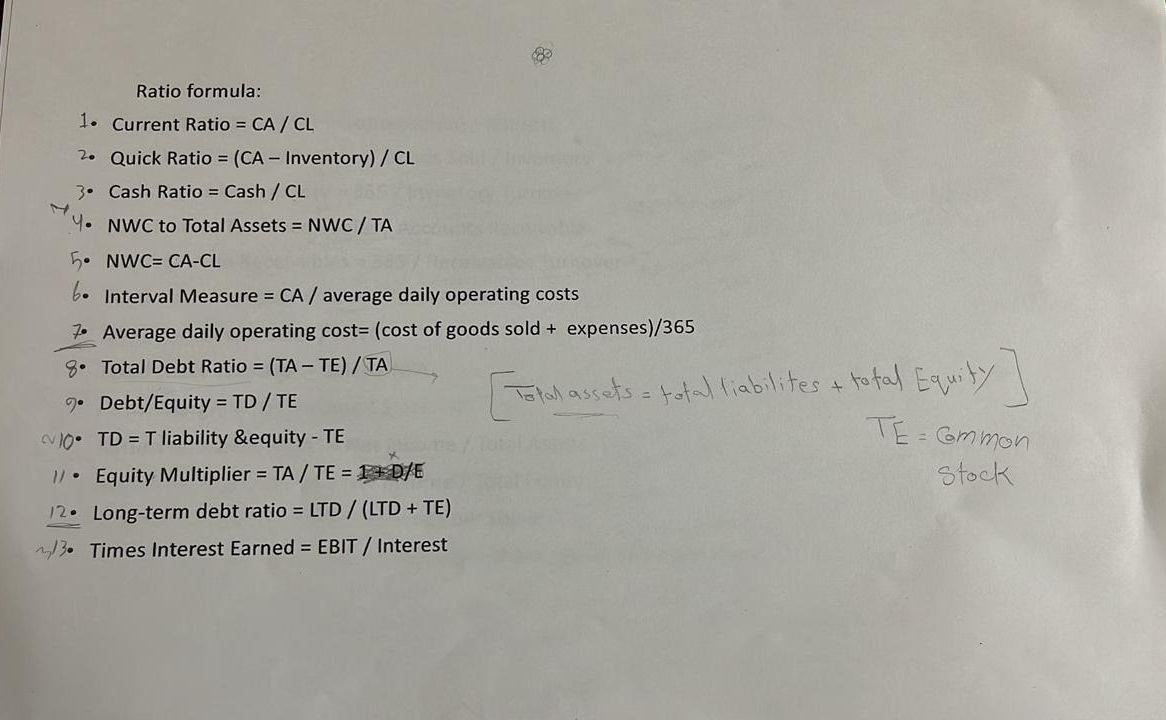 Ratio formula:
1. Current Ratio = CA / CL
2. Quick Ratio = (CA – Inventory) / CL
3. Cash Ratio = Cash / CL
4. NWC to Total Assets = NWC / TA
5. NWC= CA-CL
6. Interval Measure = CA / average daily operating costs
7. Average daily operating cost= (cost of goods sold + expenses)/365
8. Total Debt Ratio = (TA – TE) / TA
[Total assets = total liabilites + total Equity]
9. Debt/Equity = TD / TE
10. TD = T liability &equity - TE
TE = Common
Stock
11. Equity Multiplier = TA / TE = 1 + D/E
12. Long-term debt ratio = LTD / (LTD + TE)
13. Times Interest Earned = EBIT / Interest